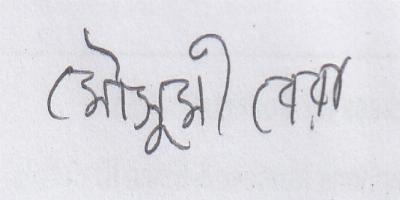 মৌসুমী বেরা